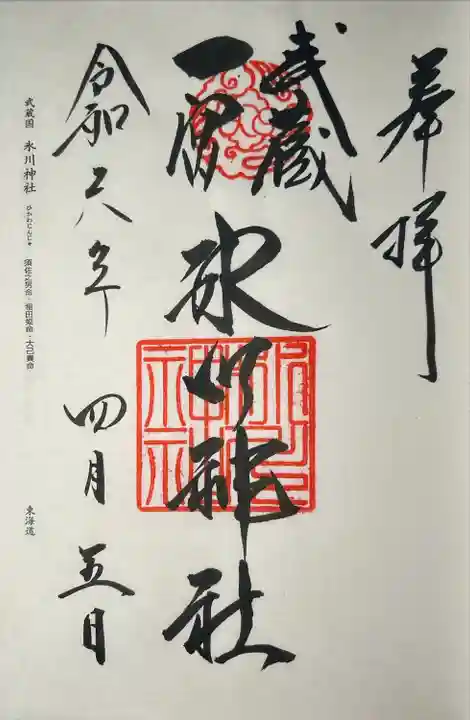 奉拝
武蔵
一宮
氷川神社
令和六年 四月 五日
武蔵国 氷川神社 ひかわじんじゃ 須佐之男命・稲田姫命・大己貴命
東海道
氷川神社